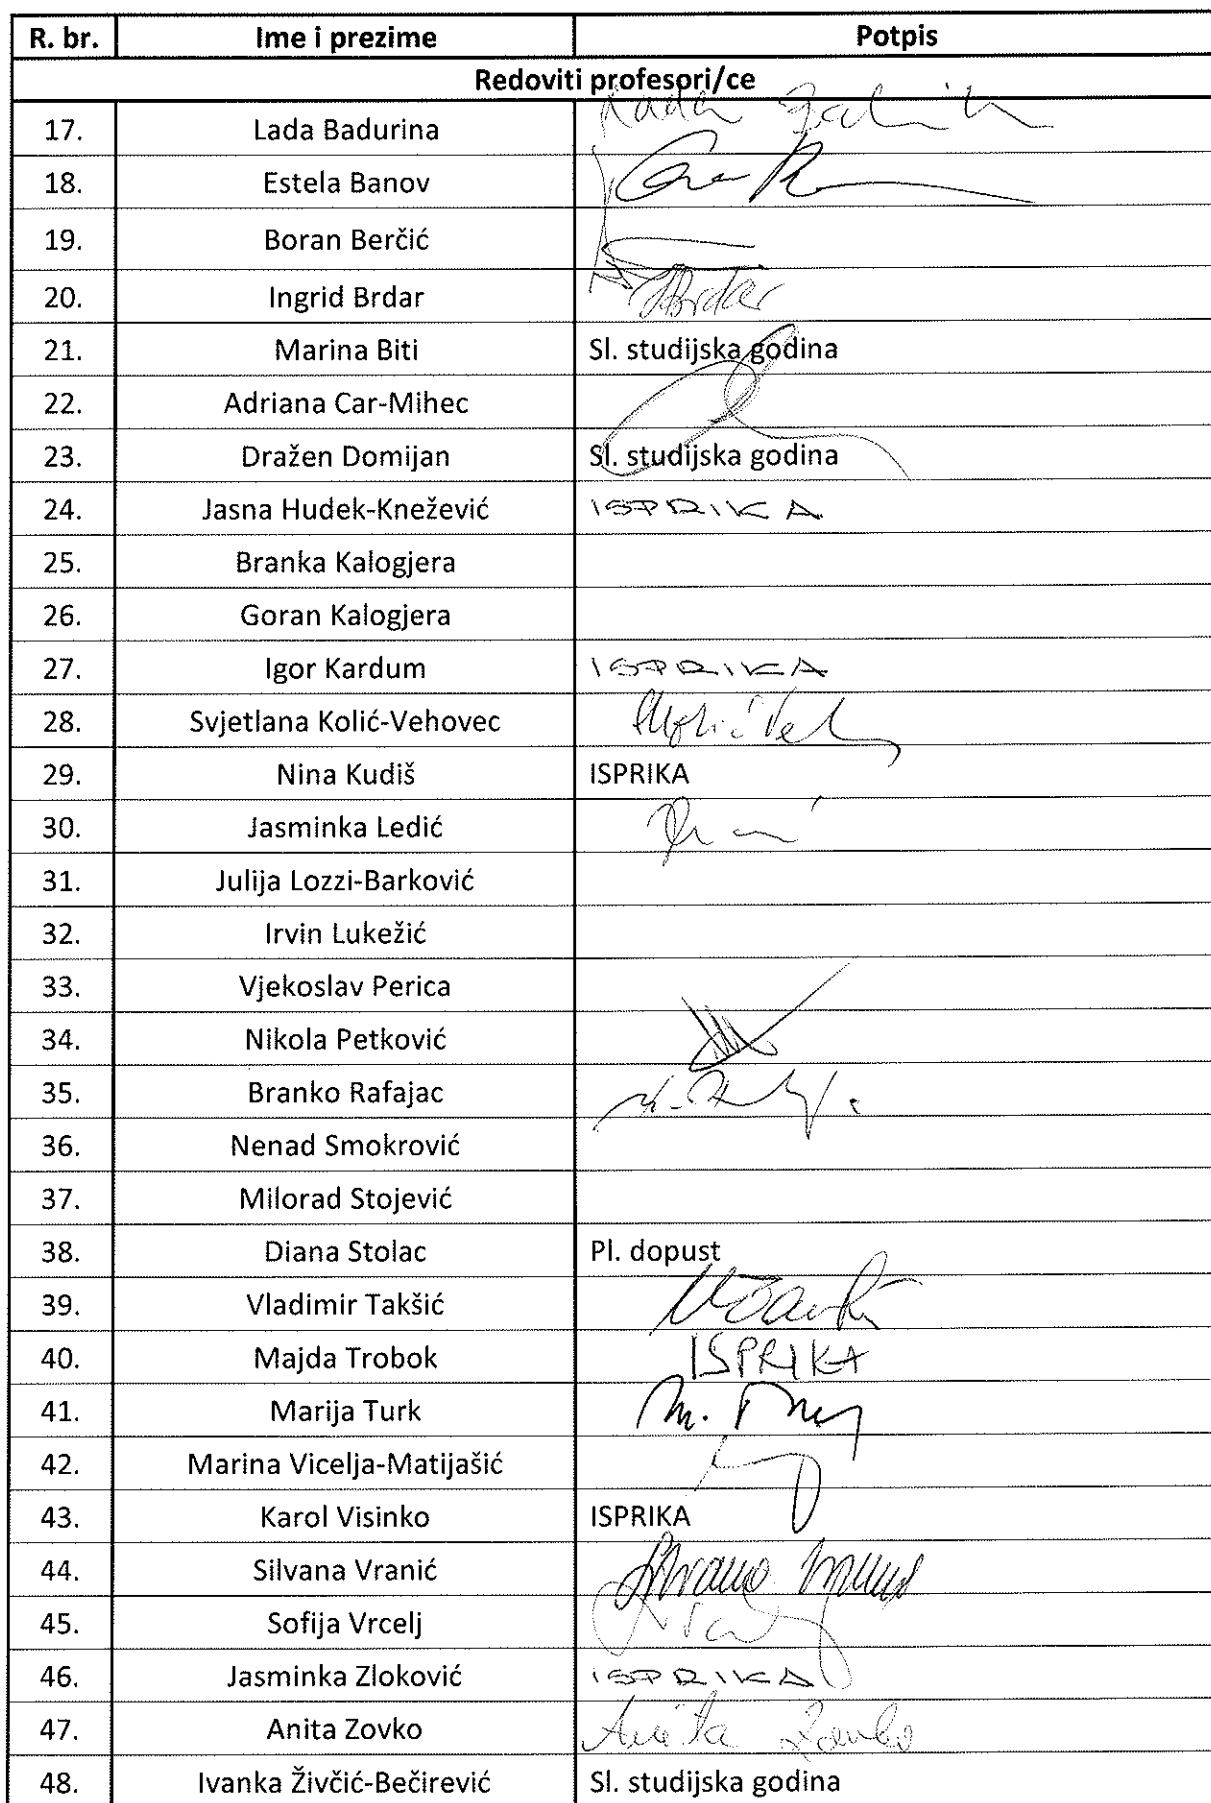 R. br. Ime i prezime Potpis
Redoviti profesori/ce
17. Lada Badurina Lada
18. Estela Banov
19. Boran Berčić
20. Ingrid Brdar IBrdar
21. Marina Biti Sl. studijska godina
22. Adriana Car-Mihec
23. Dražen Domijan Sl. studijska godina
24. Jasna Hudek-Knežević ISPRIKA
25. Branka Kalogjera
26. Goran Kalogjera
27. Igor Kardum ISPRIKA
28. Svjetlana Kolić-Vehovec
29. Nina Kudiš ISPRIKA
30. Jasminka Ledić
31. Julija Lozzi-Barković
32. Irvin Lukežić
33. Vjekoslav Perica
34. Nikola Petković
35. Branko Rafajac
36. Nenad Smokrović
37. Milorad Stojević
38. Diana Stolac Pl. dopust
39. Vladimir Takšić
40. Majda Trobok ISPRIKA
41. Marija Turk M.
42. Marina Vicelja-Matijašić
43. Karol Visinko ISPRIKA
44. Silvana Vranić
45. Sofija Vrcelj
46. Jasminka Zloković ISPRIKA
47. Anita Zovko Anita Zovko
48. Ivanka Živčić-Bečirević Sl. studijska godina